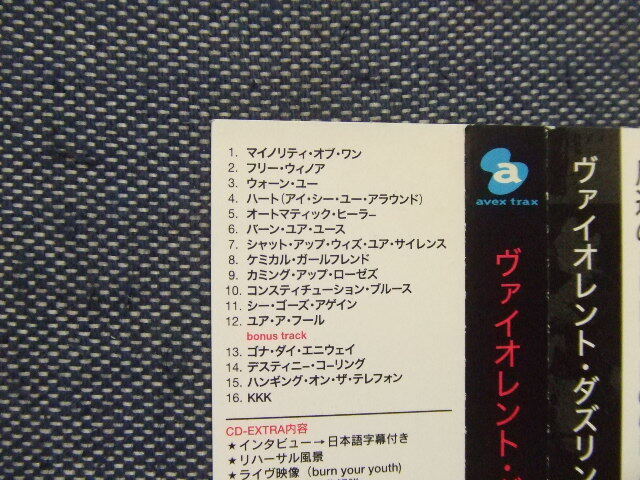 1. マイノリティ・オブ・ワン
2. フリー・ウィノア
3. ウォーン・ユー
4. ハート(アイ・シー・ユー・アラウンド)
5. オートマティック・ヒーラー
6. バーン・ユア・ユース
7. シャット・アップ・ウィズ・ユア・サイレンス
8. ケミカル・ガールフレンド
9. カミング・アップ・ローゼズ
10. コンスティチューション・ブルース
11. シー・ゴーズ・アゲイン
12. ユア・ア・フール
bonus track
13. ゴナ・ダイ・エニウェイ
14. デスティニー・コーリング
15. ハンギング・オン・ザ・テレフォン
16. KKK
CD-EXTRA内容
★インタビュー→日本語字幕付き
★リハーサル風景
★ライヴ映像 (burn your youth)
a
avex trax
ヴァイオレント・
ヴァイオレント・ダズリン